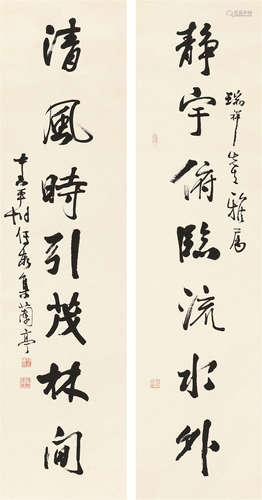 瑞祥先生雅属
静宇俯臨流水外
清風時引茂林间
集蘭亭